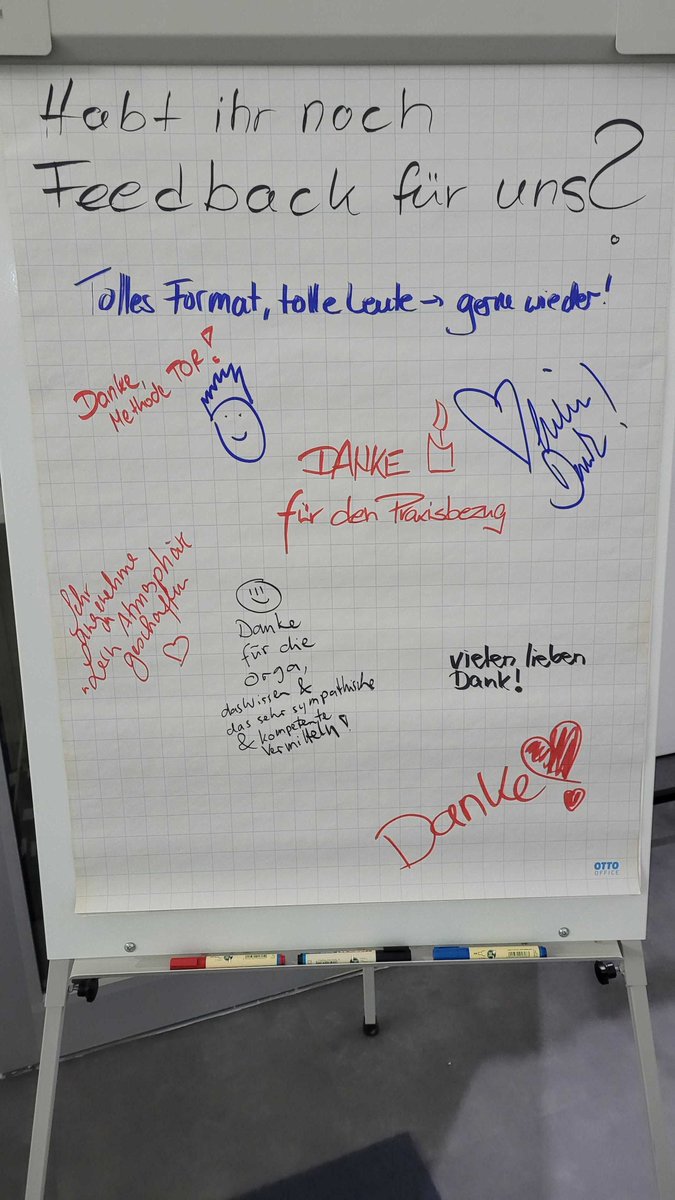 Habt ihr noch
Feedback für uns?
Tolles Format, tolle Leute → gerne wieder!
Danke,
Methode TOP!
Vielen
Dank!
DANKE
für den Praxisbezug
Sehr
angenehme
Atmosphäre
geschaffen
Danke
für die
Orga,
das Wissen &
das sehr sympathische
& kompetente
Vermitteln!
vielen lieben
Dank!
Danke
OTTO
OFFICE